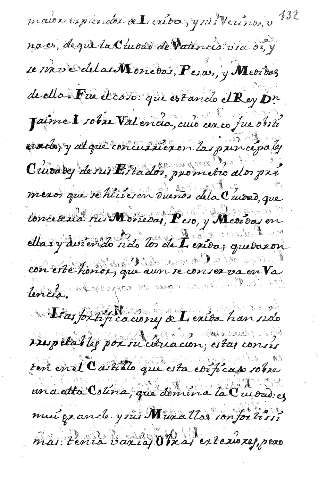 132
maior esplendor de Lerida, y sus Vecinos, u
na es, de que la Ciudad de Valencia usa oi, y
se sirve de las Monedas, Pesas, y Medidas
de ella. Fue el caso: que estando el Rey Dn
Jaime I sobre Valencia, cuio cerco fue obsti
nado, y al que concurrieron las principales
Ciudades de sus Estados, prometio a los pri
meros que se hiciesen dueños de la Ciudad, que
concederia sus Monedas, Peso, y Medidas en
ella: y aviendo sido los de Lerida, quedaron
con este honor, que aun se conserva en Va
lencia.
Las fortificaciones de Lerida han sido
respetables por su situacion; estas consis
ten en el Castillo que esta edificado sobre
una alta Colina, que domina la Ciudad: es
mui grande, y sus Murallas son fortisi
mas: tenia varias Obras exteriores, pero